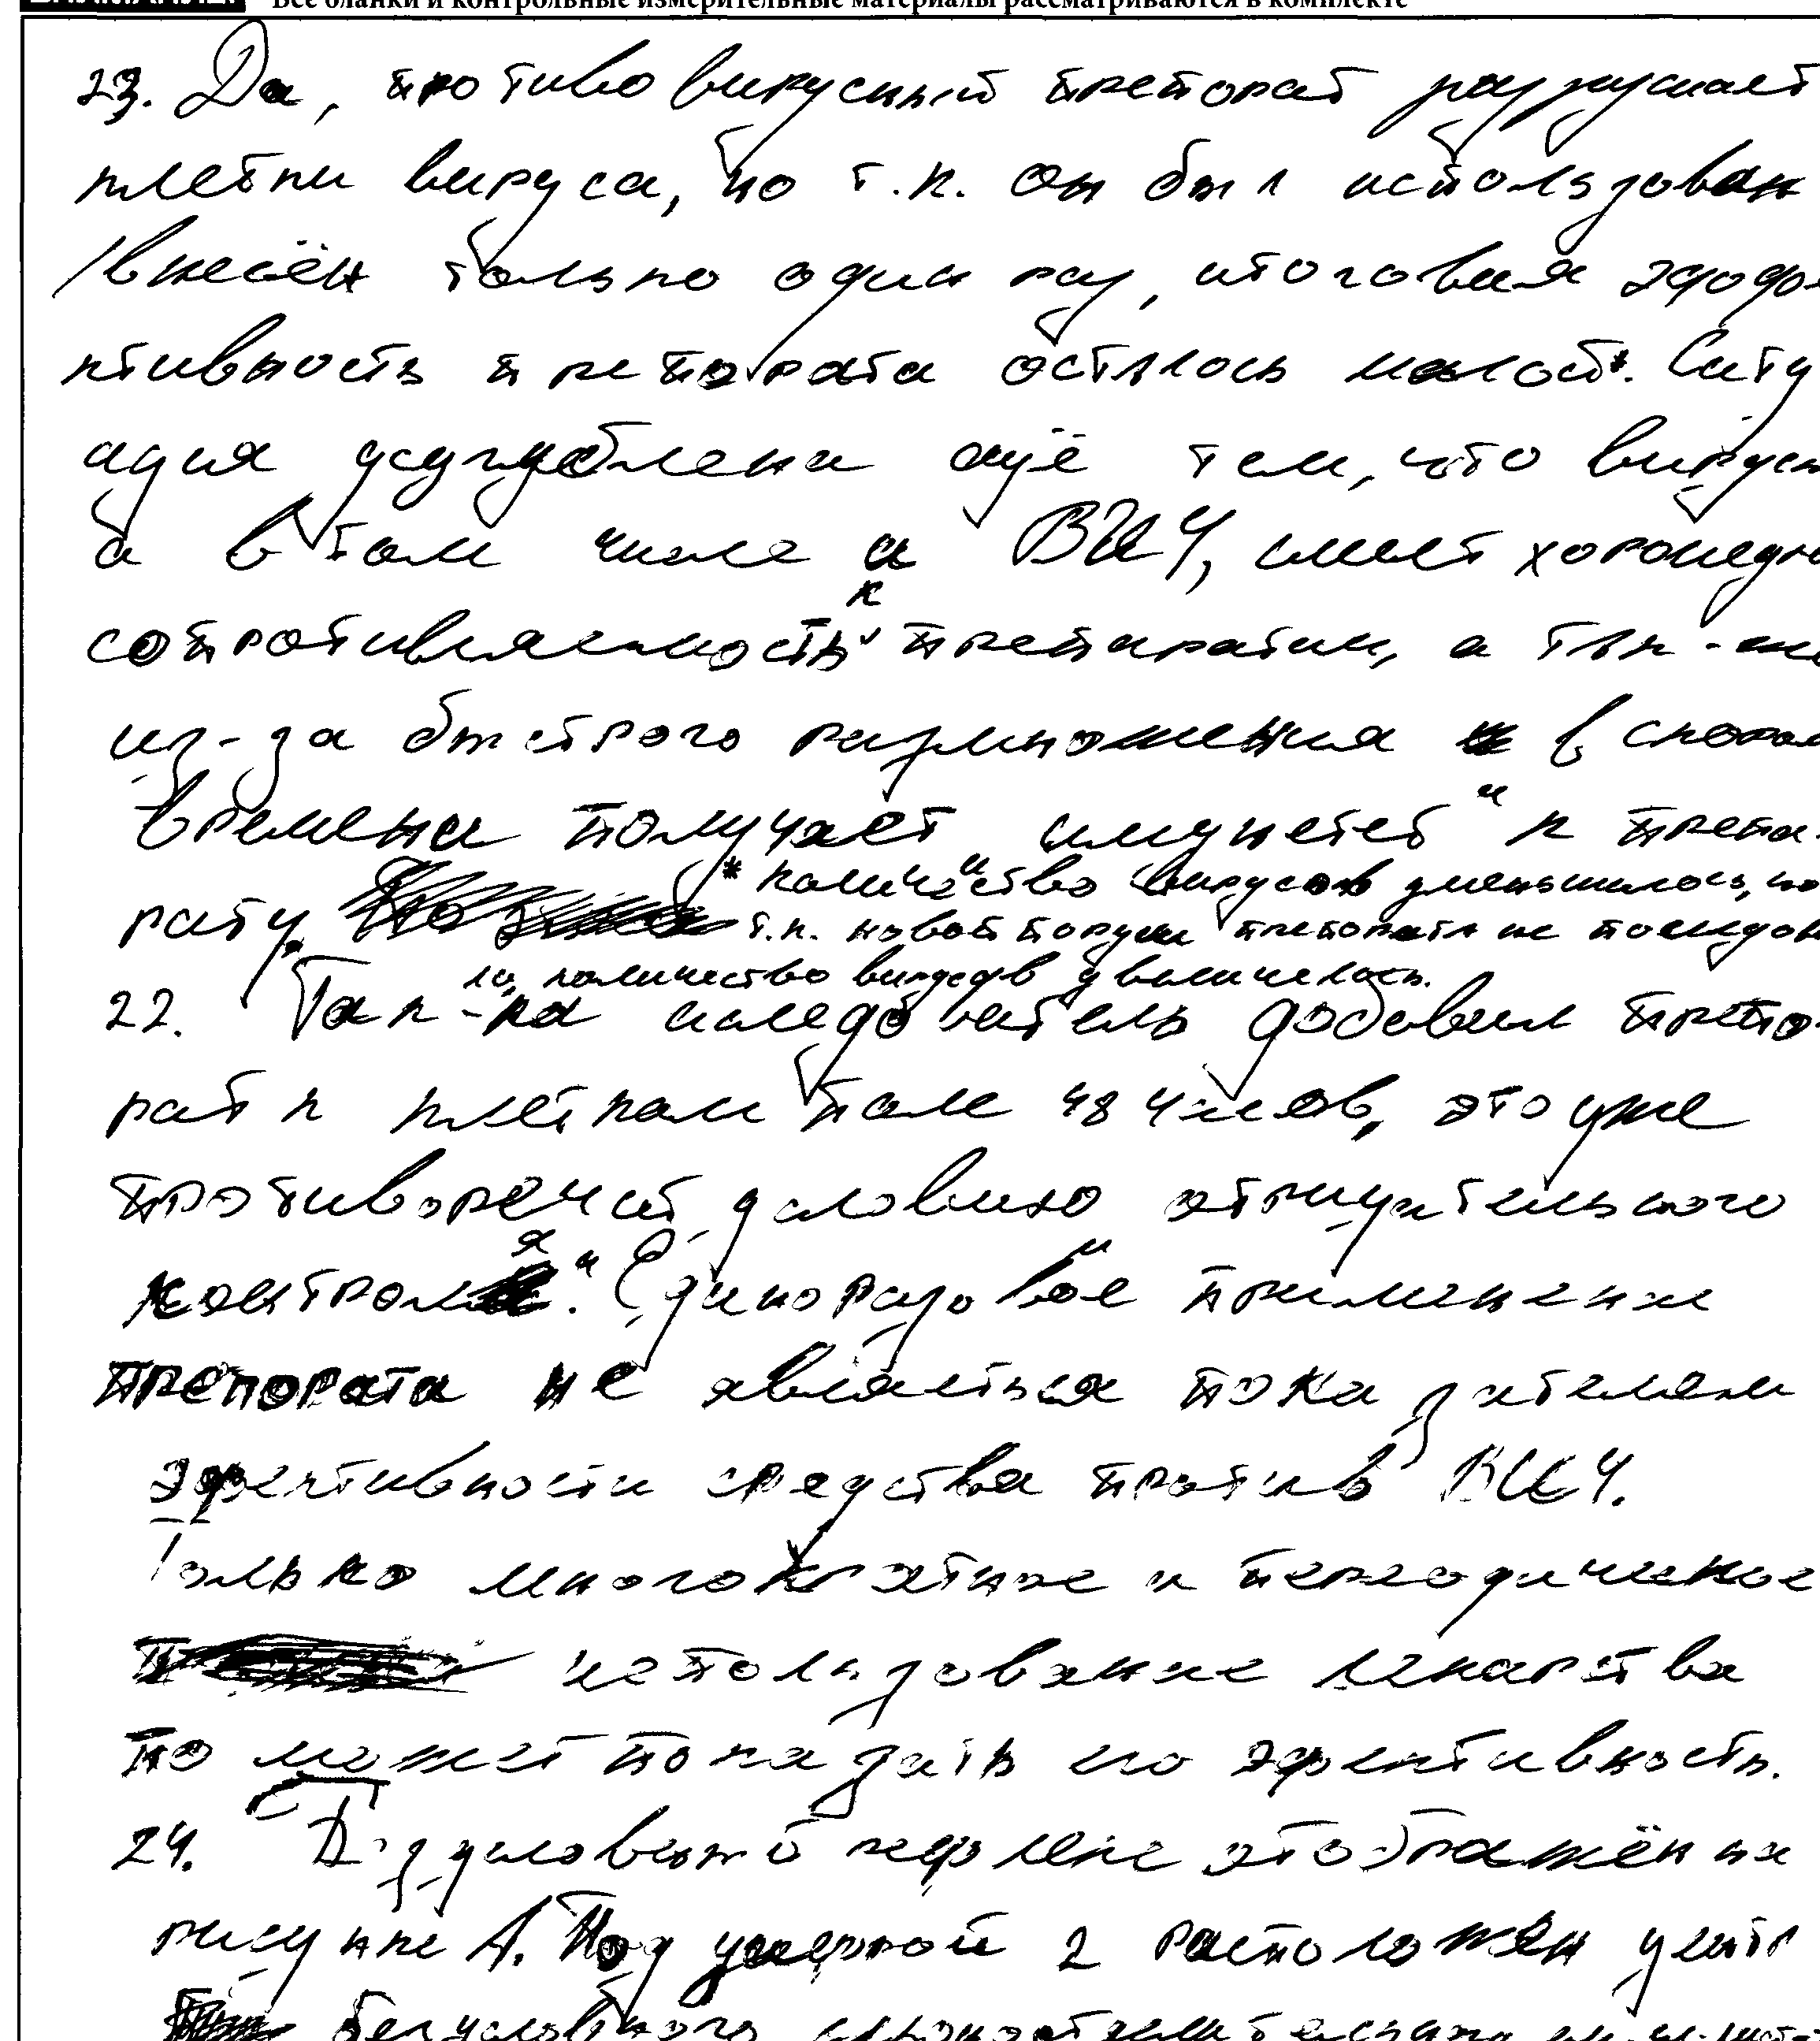 Все бланки и контрольные измерительные материалы рассматриваются в комплекте
23. Да, противовирусный препорат разрушает
клетки вируса, но т.к. он был использован
/внесён только один раз, итоговая
ктивность препората осталось малой*. Ситу
ация усугублена ещё тем, что
а в том числе и ВИЧ, имеет
сопротивляемость к препаратам, а так-же
из-за быстрого размножения в
времени получает "имунетет" к препа-
рату.
* количество вирусов уменьшилось, но
т.к. новой порции препората не последова
ло, количество вирусов увеличелось.
22. Так-ка иследователь добавил препо-
рат к клеткам посе 48 часов, это уже
противоречит условию отрицательного
"контроля". Единоразовое применение
препората не являеться показателем
эфективности средства против ВИЧ.
Только многократное и переодическое
использование лекарства
по может показать его эфективность.
24. Б условный рефлекс отображён на
рисунке А. Под цифрой 2 расположен центр
безусловного